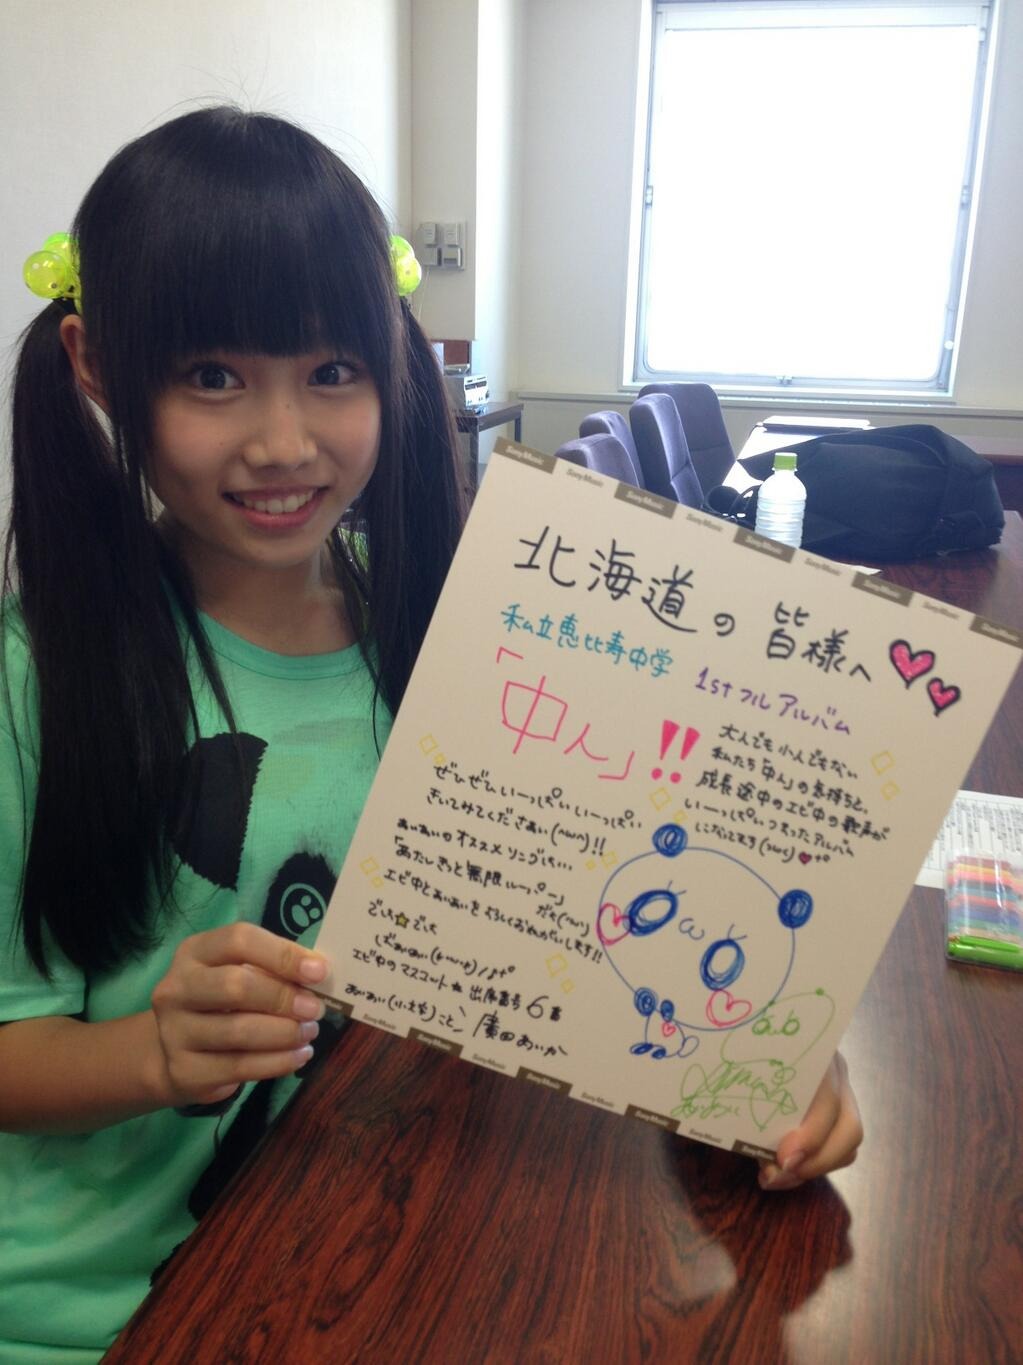 SonyMusic SonyMusic SonyMusic SonyMusic SonyMusic SonyMusic SonyMusic SonyMusic SonyMusic
北海道の皆様へ
私立恵比寿中学 1stフルアルバム
「中人」!!
大人でも小人でもない
私たち「中人」の気持ちと、
成長途中のエビ中の歌声が
いーっぱいつまったアルバム
になってます
ぜひぜひいーっぱいいーっぱい
きいてみてくださぁい(^ω^)!!
あいあいのオススメソングは…
「あたしきっと無限ルーパー」
だお
エビ中とあいあいをよろしくおねがいします!!
でした☆でした
ばぁいあい
エビ中のマスコット 出席番号6番
あいあい(小文字)こと 廣田あいか
a.b
あいあい
SonyMusic SonyMusic SonyMusic SonyMusic SonyMusic SonyMusic SonyMusic SonyMusic SonyMusic